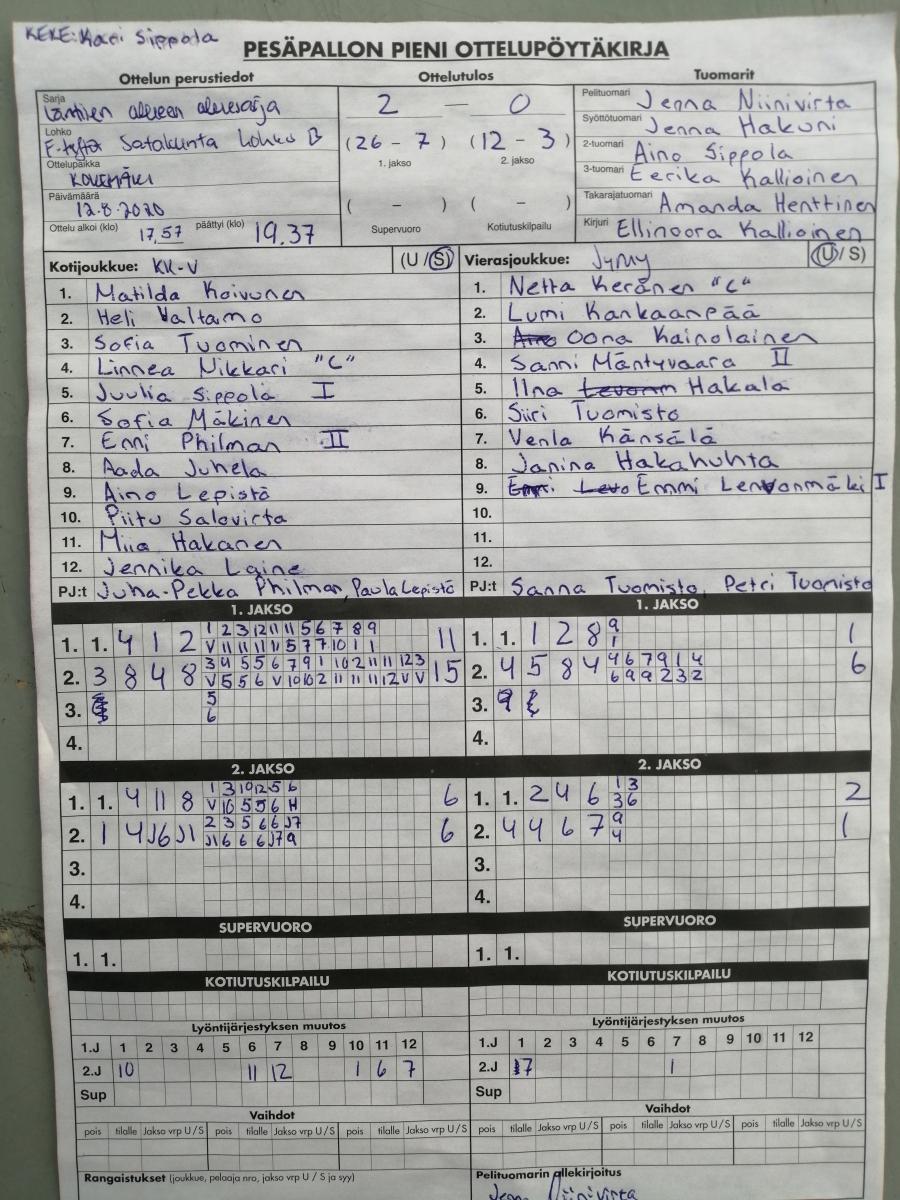 KEKE: Kari Sippola
PESÄPALLON PIENI OTTELUPÖYTÄKIRJA
Ottelun perustiedot Ottelutulos Tuomarit
Sarja Läntisen alueen aluesarja 2 — 0 Pelituomari Jenna Niinivirta
Lohko F-tytöt Satakunta Lohko B (26 - 7) (12 - 3) Syöttötuomari Jenna Hakuni
1. jakso 2. jakso 2-tuomari Aino Sippola
Ottelupaikka KOKEMÄKI 3-tuomari Eerika Kallioinen
Päivämäärä 12.8.2020 ( - ) ( - ) Takarajatuomari Amanda Henttinen
Ottelu alkoi (klo) 17,57 päättyi (klo) 19.37 Supervuoro Kotiutuskilpailu Kirjuri Ellinoora Kallioinen
Kotijoukkue: KK-V (U / S) Vierasjoukkue: JyMy (U / S)
1. Matilda Koivunen 1. Netta Keränen "C"
2. Heli Valtamo 2. Lumi Kankaanpää
3. Sofia Tuominen 3. Oona Kainolainen
4. Linnea Nikkari "C" 4. Sanni Mäntyvaara II
5. Juulia Sippola I 5. Ilna Hakala
6. Sofia Mäkinen 6. Siiri Tuomisto
7. Enni Philman II 7. Venla Känsälä
8. Aada Juhela 8. Janina Hakahuhta
9. Aino Lepistö 9. Emmi Levonmäki I
10. Piitu Salovirta 10.
11. Miia Hakanen 11.
12. Jennika Laine 12.
PJ:t Juha-Pekka Philman, Paula Lepistö PJ:t Sanna Tuomisto, Petri Tuomisto
1. JAKSO 1. JAKSO
1 2 3 12 11 11 5 6 7 8 9 9
1. 1. 4 1 2 V 11 11 11 11 5 7 7 10 1 1 11 1. 1. 1 2 8 1 1
3 4 5 5 6 7 9 1 10 2 11 11 12 3 4 6 7 9 1 4
2. 3 8 4 8 V 5 5 6 V 10 10 2 11 11 11 12 V V 15 2. 4 5 8 4 6 9 9 2 3 2 6
3. 5 6 3. 9
4. 4.
2. JAKSO 2. JAKSO
1 3 10 12 5 6 1 3
1. 1. 4 11 8 V 10 5 5 6 H 6 1. 1. 2 4 6 3 6 2
2 3 5 6 6 J7 9
2. 1 4 J6 J1 J1 6 6 6 J7 9 6 2. 4 4 6 7 4 1
3. 3.
4. 4.
SUPERVUORO SUPERVUORO
1. 1. 1. 1.
KOTIUTUSKILPAILU KOTIUTUSKILPAILU
Lyöntijärjestyksen muutos Lyöntijärjestyksen muutos
1.J 1 2 3 4 5 6 7 8 9 10 11 12 1.J 1 2 3 4 5 6 7 8 9 10 11 12
2.J 10 11 12 1 6 7 2.J 7 1
Sup Sup
Vaihdot Vaihdot
pois tilalle Jakso vrp U / S pois tilalle Jakso vrp U / S pois tilalle Jakso vrp U / S pois tilalle Jakso vrp U / S pois tilalle Jakso vrp U / S pois tilalle Jakso vrp U / S
Rangaistukset (joukkue, pelaaja nro, jakso vrp U / S ja syy) Pelituomarin allekirjoitus
Jenna Niinivirta